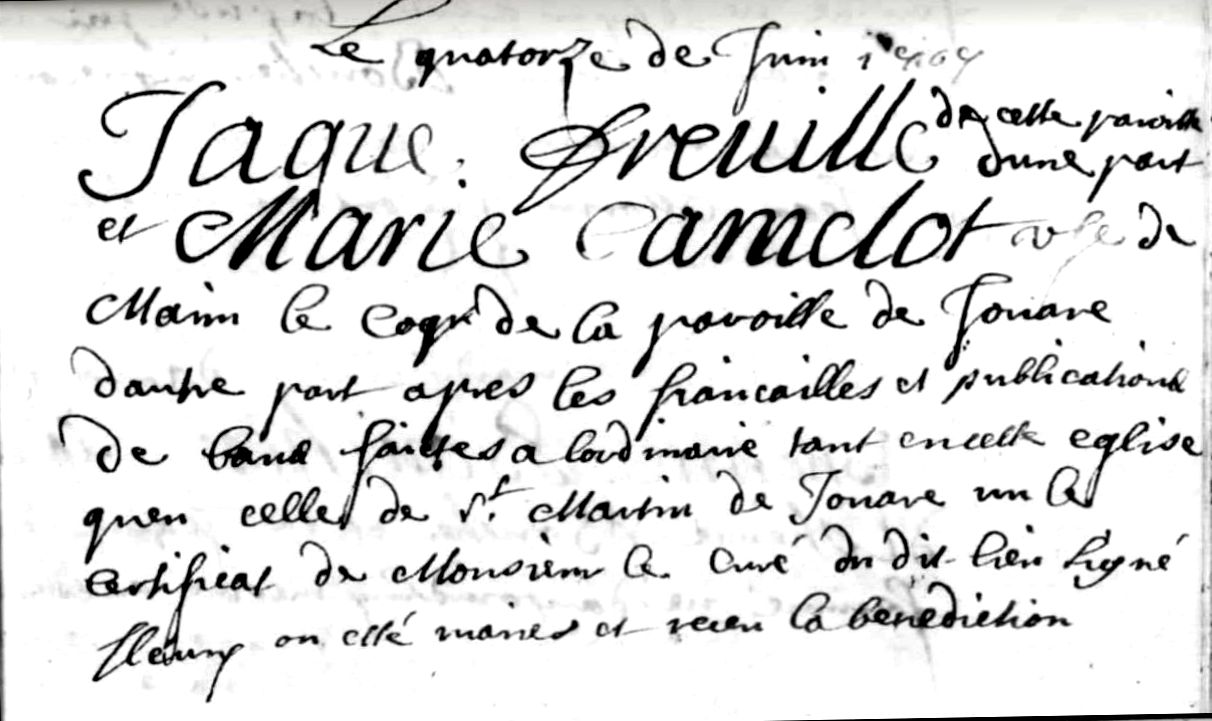 Le quatorze de Juin
Jaque Dreuille de cette paroisse
dune part
et Marie Camelot vfe de
Marin le Coqr de la paroisse de Jouare
dautre part apres les fiancailles et publications
de bans faictes a lordinaire tant en cette eglise
quen celle de St. Martin de Jouare veu le
certificat de Monsieur le Curé du dit lieu signé
fleury on esté mariez et receu la benediction